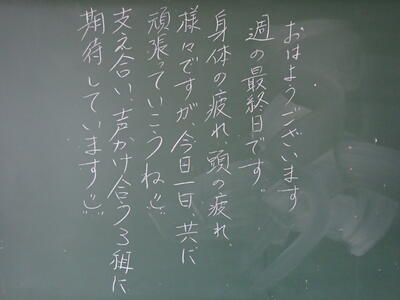 おはようございます
週の最終日です。
身体の疲れ、頭の疲れ、
様々ですが、今日一日、共に
頑張っていこうね(^^)
支え合い、声かけ合う3組に
期待しています(^^)